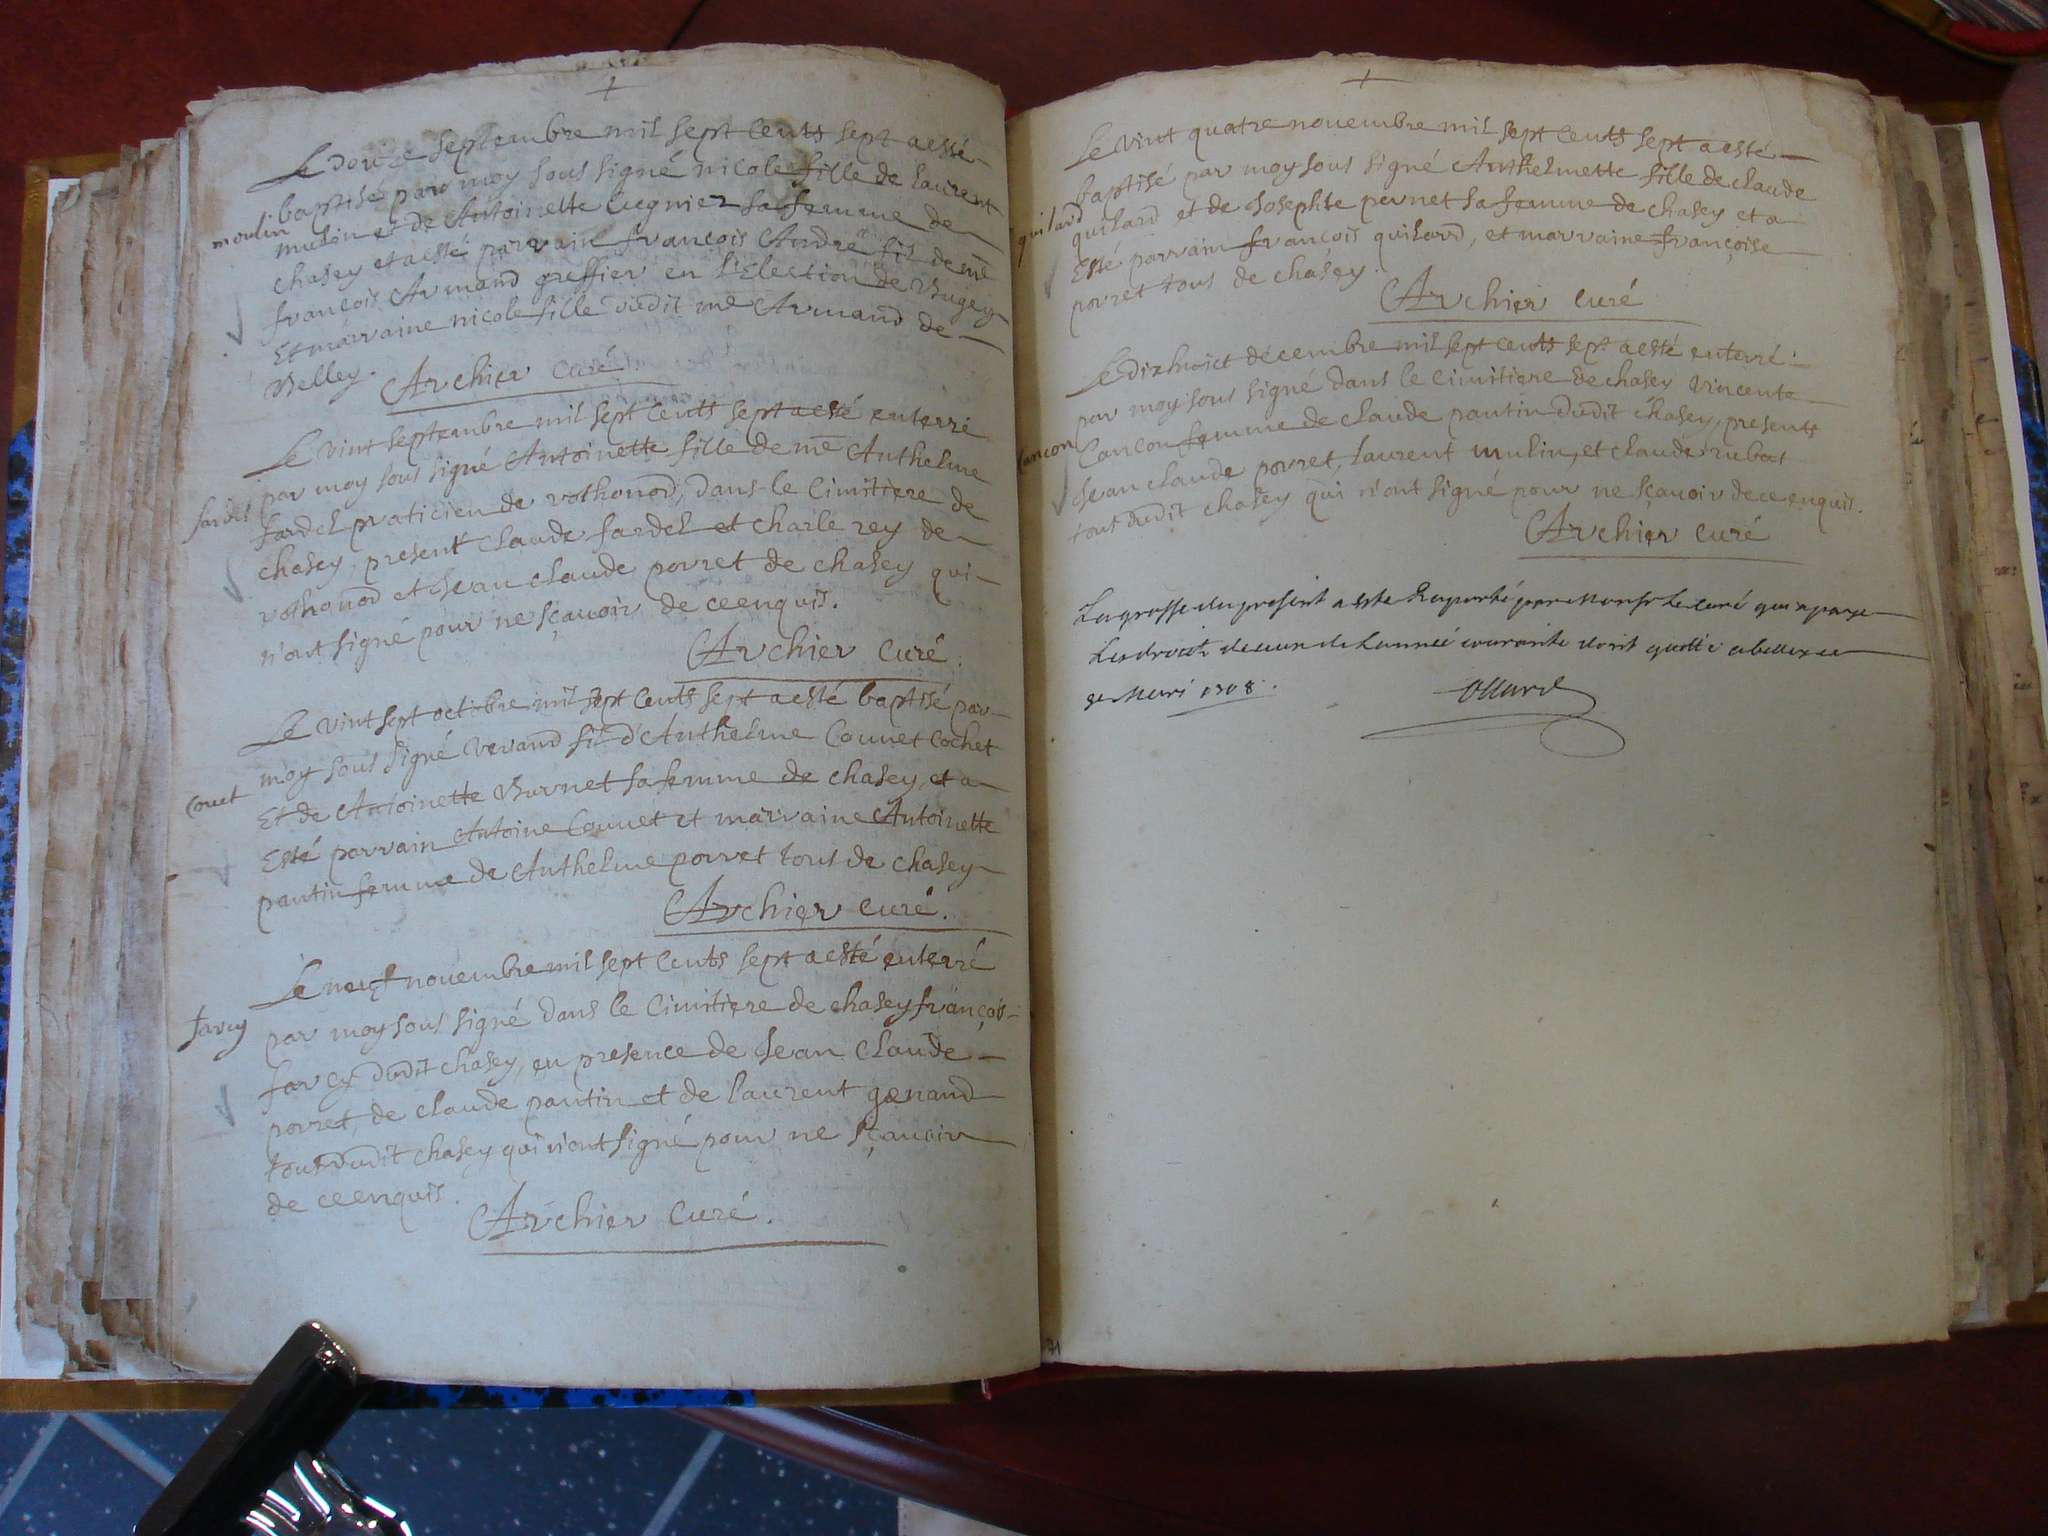 Le douze septembre mil sept cents sept a esté
baptisé par moy sous signé nicole fille de laurent
moulin
mulin et de Antoinette Cugnier sa femme de
chasey et a esté parrain françois André fil de me
françois Armand greffier en l'Election de Bugey
Et marraine nicole fille dudit me Armand de
Belley.
Archier curé
Le vint septembre mil sept cents sept a esté enterré
par moy sous signé Antoinette fille de me Anthelme
fardel
fardel praticien de rothonod, dans le Cimitiere de
chasey, present Claude fardel et charle rey de
rothonod et Jean claude porret de chasey qui
n'ont signé pour ne sçavoir de ce enquis.
Archier curé.
Le vint sept octobre mil sept cents sept a esté baptisé par
moy sous signé Verand fil d'Anthelme Couuet Cochet
Couet
Et de Antoinette Burnet sa femme de chasey, et a
Esté parrain Antoine Couuet et marraine Antoinette
pantin femme de Anthelme porret tous de chasey
Archier curé.
Le neuf nouembre mil sept cents sept a esté enterré
par moy sous signé dans le Cimitiere de chasey françois
farcy
farcy dudit chasey, en presence de Jean Claude
porret, de claude pantin et de laurent genand
tous dudit chasey qui n'ont signé pour ne sçauoir
de ce enquis.
Archier Curé.
Le vint quatre nouembre mil sept cents sept a esté
baptisé par moy sous signé Anthelmette fille de claude
quilard
quilard et de Josephte pernet sa femme de chasey et a
Esté parrain françois quilard, et marraine françoise
porret tous de chasey.
Archier curé
Le dixhuict decembre mil sept cents sept a esté enterré
par moy sous signé dans le Cimitiere de chasey Vincente
Cancon
Cancon femme de claude pantin dudit chasey, presents
Jean claude porret, laurent mulin, et claude rubat
tout dudit chasey qui n'ont signé pour ne sçavoir de ce enquis.
Archier curé
La grosse du present a este Raporté par Monsr le curé qui a paye
Les droits de ceux de Lannée courante dont quitte a belley ce
9e Mars 1708.
71